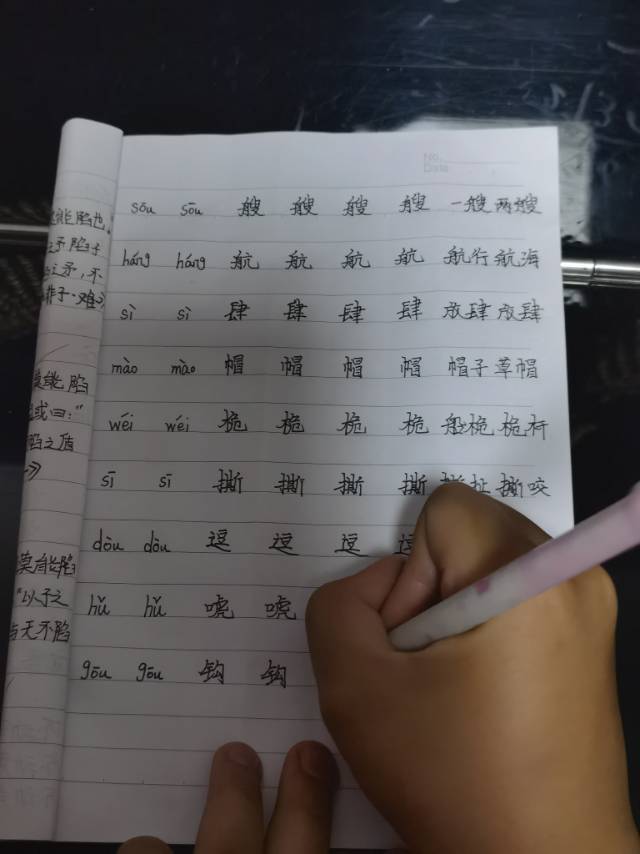 No.
Date
sōu sōu 艘 艘 艘 艘 一艘 两艘
háng háng 航 航 航 航 航行 航海
sì sì 肆 肆 肆 肆 放肆 放肆
mào mào 帽 帽 帽 帽 帽子 草帽
wéi wéi 桅 桅 桅 桅 船桅 桅杆
sī sī 撕 撕 撕 撕 撕扯 撕咬
dòu dòu 逗 逗 逗 逗
hǔ hǔ 唬 唬
gōu gōu 钩 钩
能陷也
矛陷子
之矛,不
非子·难
能陷
或曰:"
陷之盾
莫能陷
"以子之
无不陷